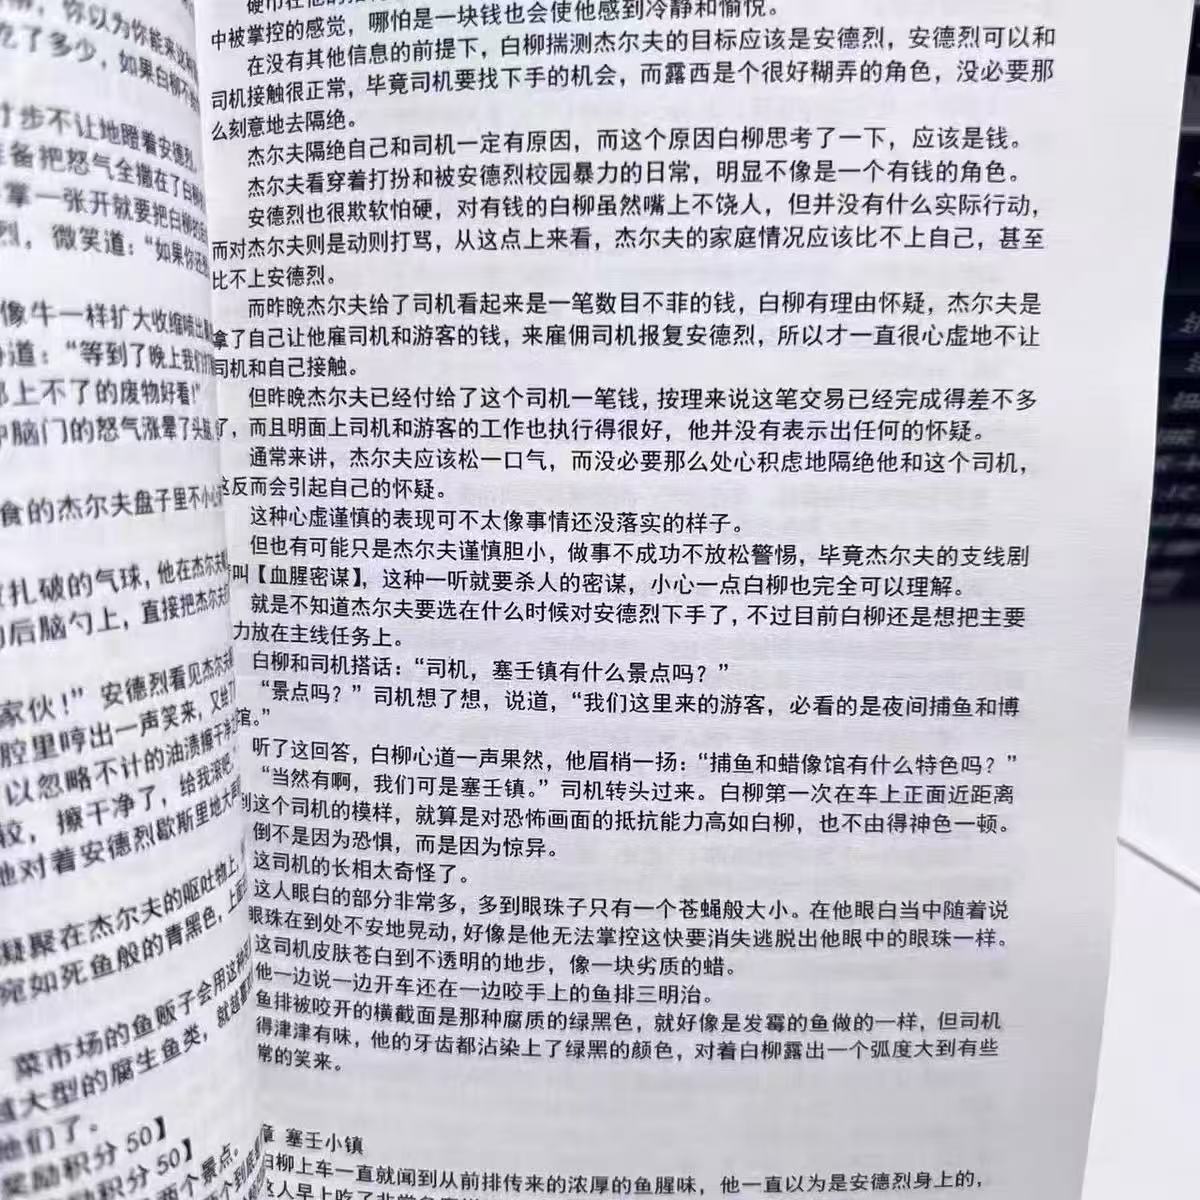 ，你以为你能来这种
吃了多少，如果白柳不
寸步不让地瞪着安德烈，
准备把怒气全撒在了白柳
掌一张开就要把白柳
烈，微笑道：“如果你还
像牛一样扩大收缩喷出
道：“等到了晚上我们
上不了的废物好看！”
脑门的怒气涨晕了头
食的杰尔夫盘子里不小心
扎破的气球，他在杰尔夫
后脑勺上，直接把杰尔夫
家伙！”安德烈看见杰尔夫
腔里哼出一声笑来，又给了
以忽略不计的油渍擦干净
擦干净了，给我滚吧
他对着安德烈歇斯里地大
凝聚在杰尔夫的呕吐物上，
宛如死鱼般的青黑色，上面
菜市场的鱼贩子会用这种
大型的腐生鱼类，就
他们了。
奖励积分 50】
励积分 50】
两个景点。
硬币在他的
中被掌控的感觉，哪怕是一块钱也会使他感到冷静和愉悦。
在没有其他信息的前提下，白柳揣测杰尔夫的目标应该是安德烈，安德烈可以和
司机接触很正常，毕竟司机要找下手的机会，而露西是个很好糊弄的角色，没必要那
么刻意地去隔绝。
杰尔夫隔绝自己和司机一定有原因，而这个原因白柳思考了一下，应该是钱。
杰尔夫看穿着打扮和被安德烈校园暴力的日常，明显不像是一个有钱的角色。
安德烈也很欺软怕硬，对有钱的白柳虽然嘴上不饶人，但并没有什么实际行动，
而对杰尔夫则是动则打骂，从这点上来看，杰尔夫的家庭情况应该比不上自己，甚至
比不上安德烈。
而昨晚杰尔夫给了司机看起来是一笔数目不菲的钱，白柳有理由怀疑，杰尔夫是
拿了自己让他雇司机和游客的钱，来雇佣司机报复安德烈，所以才一直很心虚地不让
司机和自己接触。
但昨晚杰尔夫已经付给了这个司机一笔钱，按理来说这笔交易已经完成得差不多
了，而且明面上司机和游客的工作也执行得很好，他并没有表示出任何的怀疑。
通常来讲，杰尔夫应该松一口气，而没必要那么处心积虑地隔绝他和这个司机，
这反而会引起自己的怀疑。
这种心虚谨慎的表现可不太像事情还没落实的样子。
但也有可能只是杰尔夫谨慎胆小，做事不成功不放松警惕，毕竟杰尔夫的支线剧
叫【血腥密谋】，这种一听就要杀人的密谋，小心一点白柳也完全可以理解。
就是不知道杰尔夫要选在什么时候对安德烈下手了，不过目前白柳还是想把主要
力放在主线任务上。
白柳和司机搭话：“司机，塞壬镇有什么景点吗？”
“景点吗？”司机想了想，说道，“我们这里来的游客，必看的是夜间捕鱼和博
馆。”
听了这回答，白柳心道一声果然，他眉梢一扬：“捕鱼和蜡像馆有什么特色吗？”
“当然有啊，我们可是塞壬镇。”司机转头过来。白柳第一次在车上正面近距离
到这个司机的模样，就算是对恐怖画面的抵抗能力高如白柳，也不由得神色一顿。
倒不是因为恐惧，而是因为惊异。
这司机的长相太奇怪了。
这人眼白的部分非常多，多到眼珠子只有一个苍蝇般大小。在他眼白当中随着说
眼珠在到处不安地晃动，好像是他无法掌控这快要消失逃脱出他眼中的眼珠一样。
这司机皮肤苍白到不透明的地步，像一块劣质的蜡。
他一边说一边开车还在一边咬手上的鱼排三明治。
鱼排被咬开的横截面是那种腐质的绿黑色，就好像是发霉的鱼做的一样，但司机
得津津有味，他的牙齿都沾染上了绿黑的颜色，对着白柳露出一个弧度大到有些
常的笑来。
章 塞壬小镇
白柳上车一直就闻到从前排传来的浓厚的鱼腥味，他一直以为是安德烈身上的，
这人早上吃了非常多